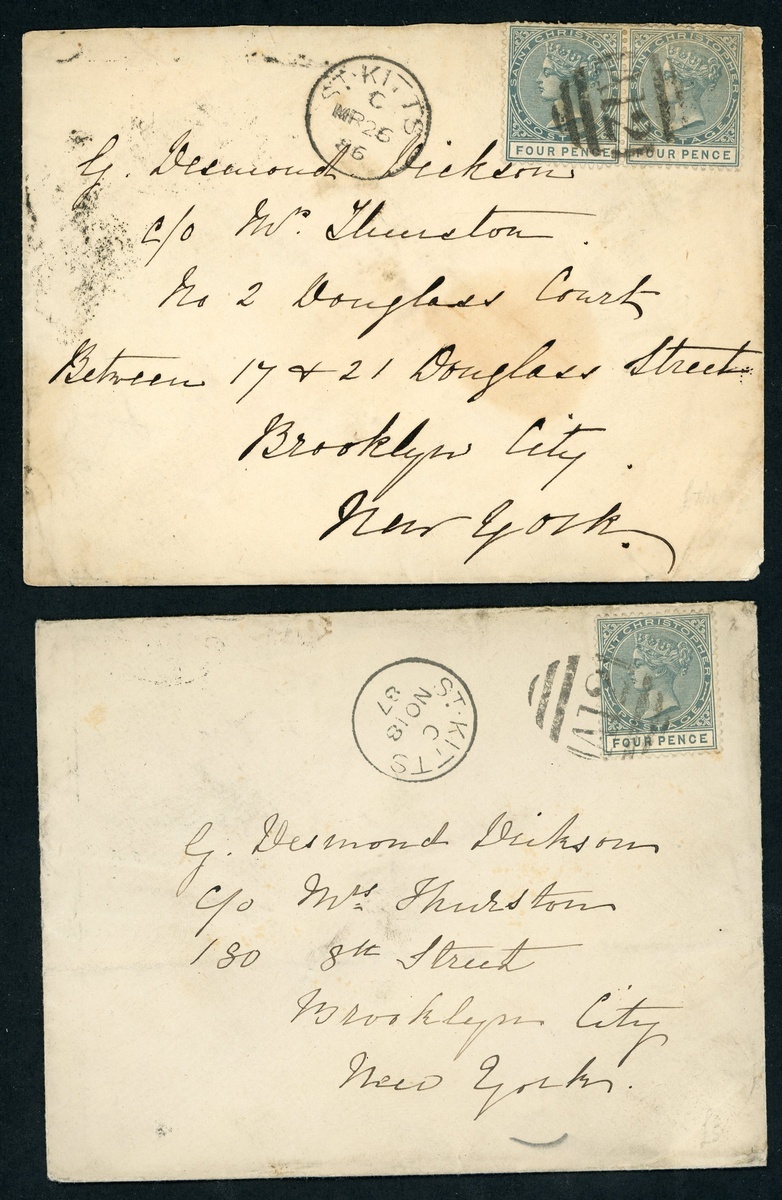 SAINT CHRISTOPHER SAINT CHRISTOPHER
POSTAGE POSTAGE
FOUR PENCE FOUR PENCE
ST. KITTS
C
MR 26
86
G. Desmond Dickson
c/o Mrs. Thurston.
No 2 Douglass Court
Between 17 & 21 Douglass Street
Brooklyn City.
New York.
SAINT CHRISTOPHER
POSTAGE
FOUR PENCE
A12
ST. KITTS
C
NO 18
87
G. Desmond Dickson
c/o Mrs Thurston
180 8th Street
Brooklyn City
New York.